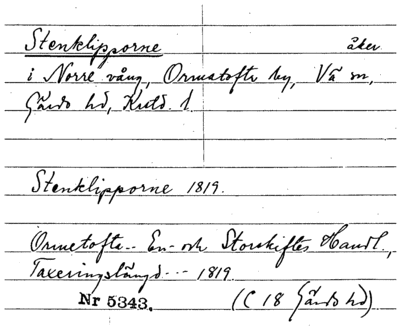 Stenklipporne åker
i Norre vång, Ormatofte by, Vä sn,
Gärds hd, Kristd. l.
Stenklipporne 1819.
Ormetofta-- En- och Storskiftes Handl.,
Taxeringslängd --- 1819
Nr 5343. (C 18 Gärds hd)